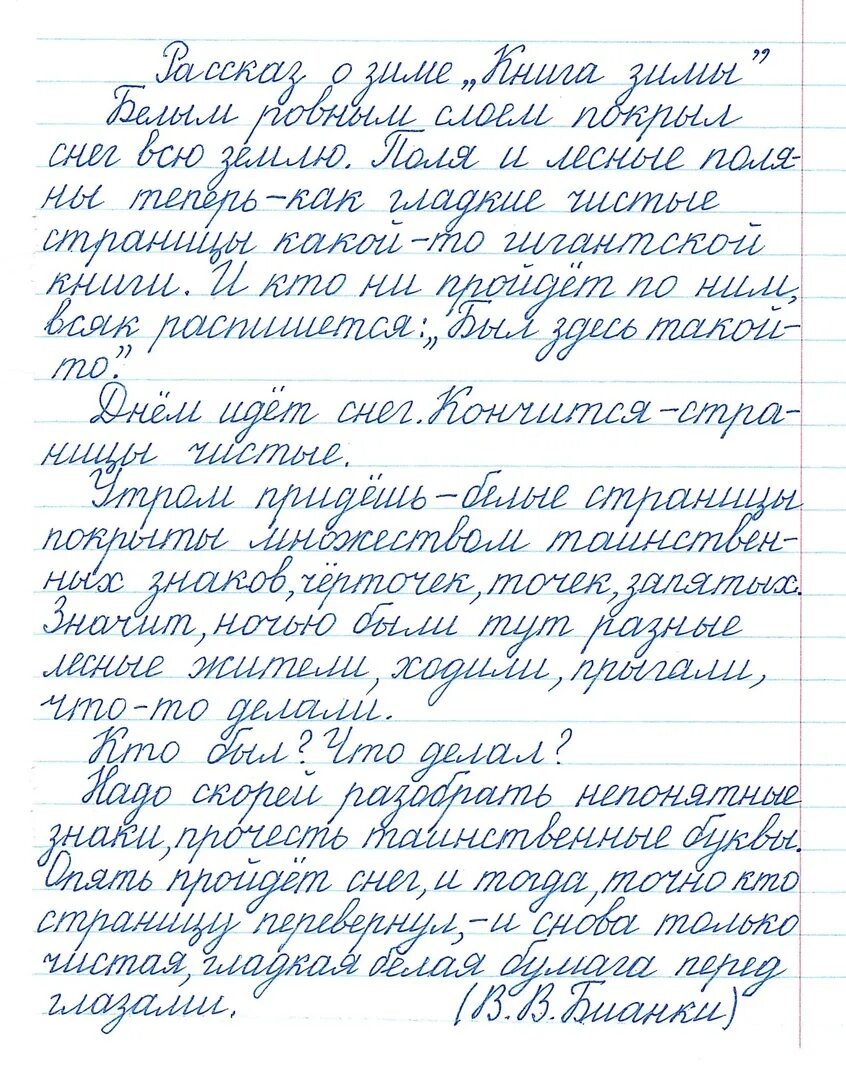 Рассказ о зиме „Книга зимы”
Белым ровным слоем покрыл
снег всю землю. Поля и лесные поля-
ны теперь – как гладкие чистые
страницы какой-то гигантской
книги. И кто ни пройдёт по ним,
всяк распишется: „Был здесь такой-
то.”
Днём идёт снег. Кончится – стра-
ницы чистые.
Утром придёшь – белые страницы
покрыты множеством таинствен-
ных знаков, чёрточек, точек, запятых.
Значит, ночью были тут разные
лесные жители, ходили, прыгали,
что-то делали.
Кто был? Что делал?
Надо скорей разобрать непонятные
знаки, прочесть таинственные буквы.
Опять пройдёт снег, и тогда, точно кто
страницу перевернул, – и снова только
чистая, гладкая белая бумага перед
глазами. (В. В. Бианки)